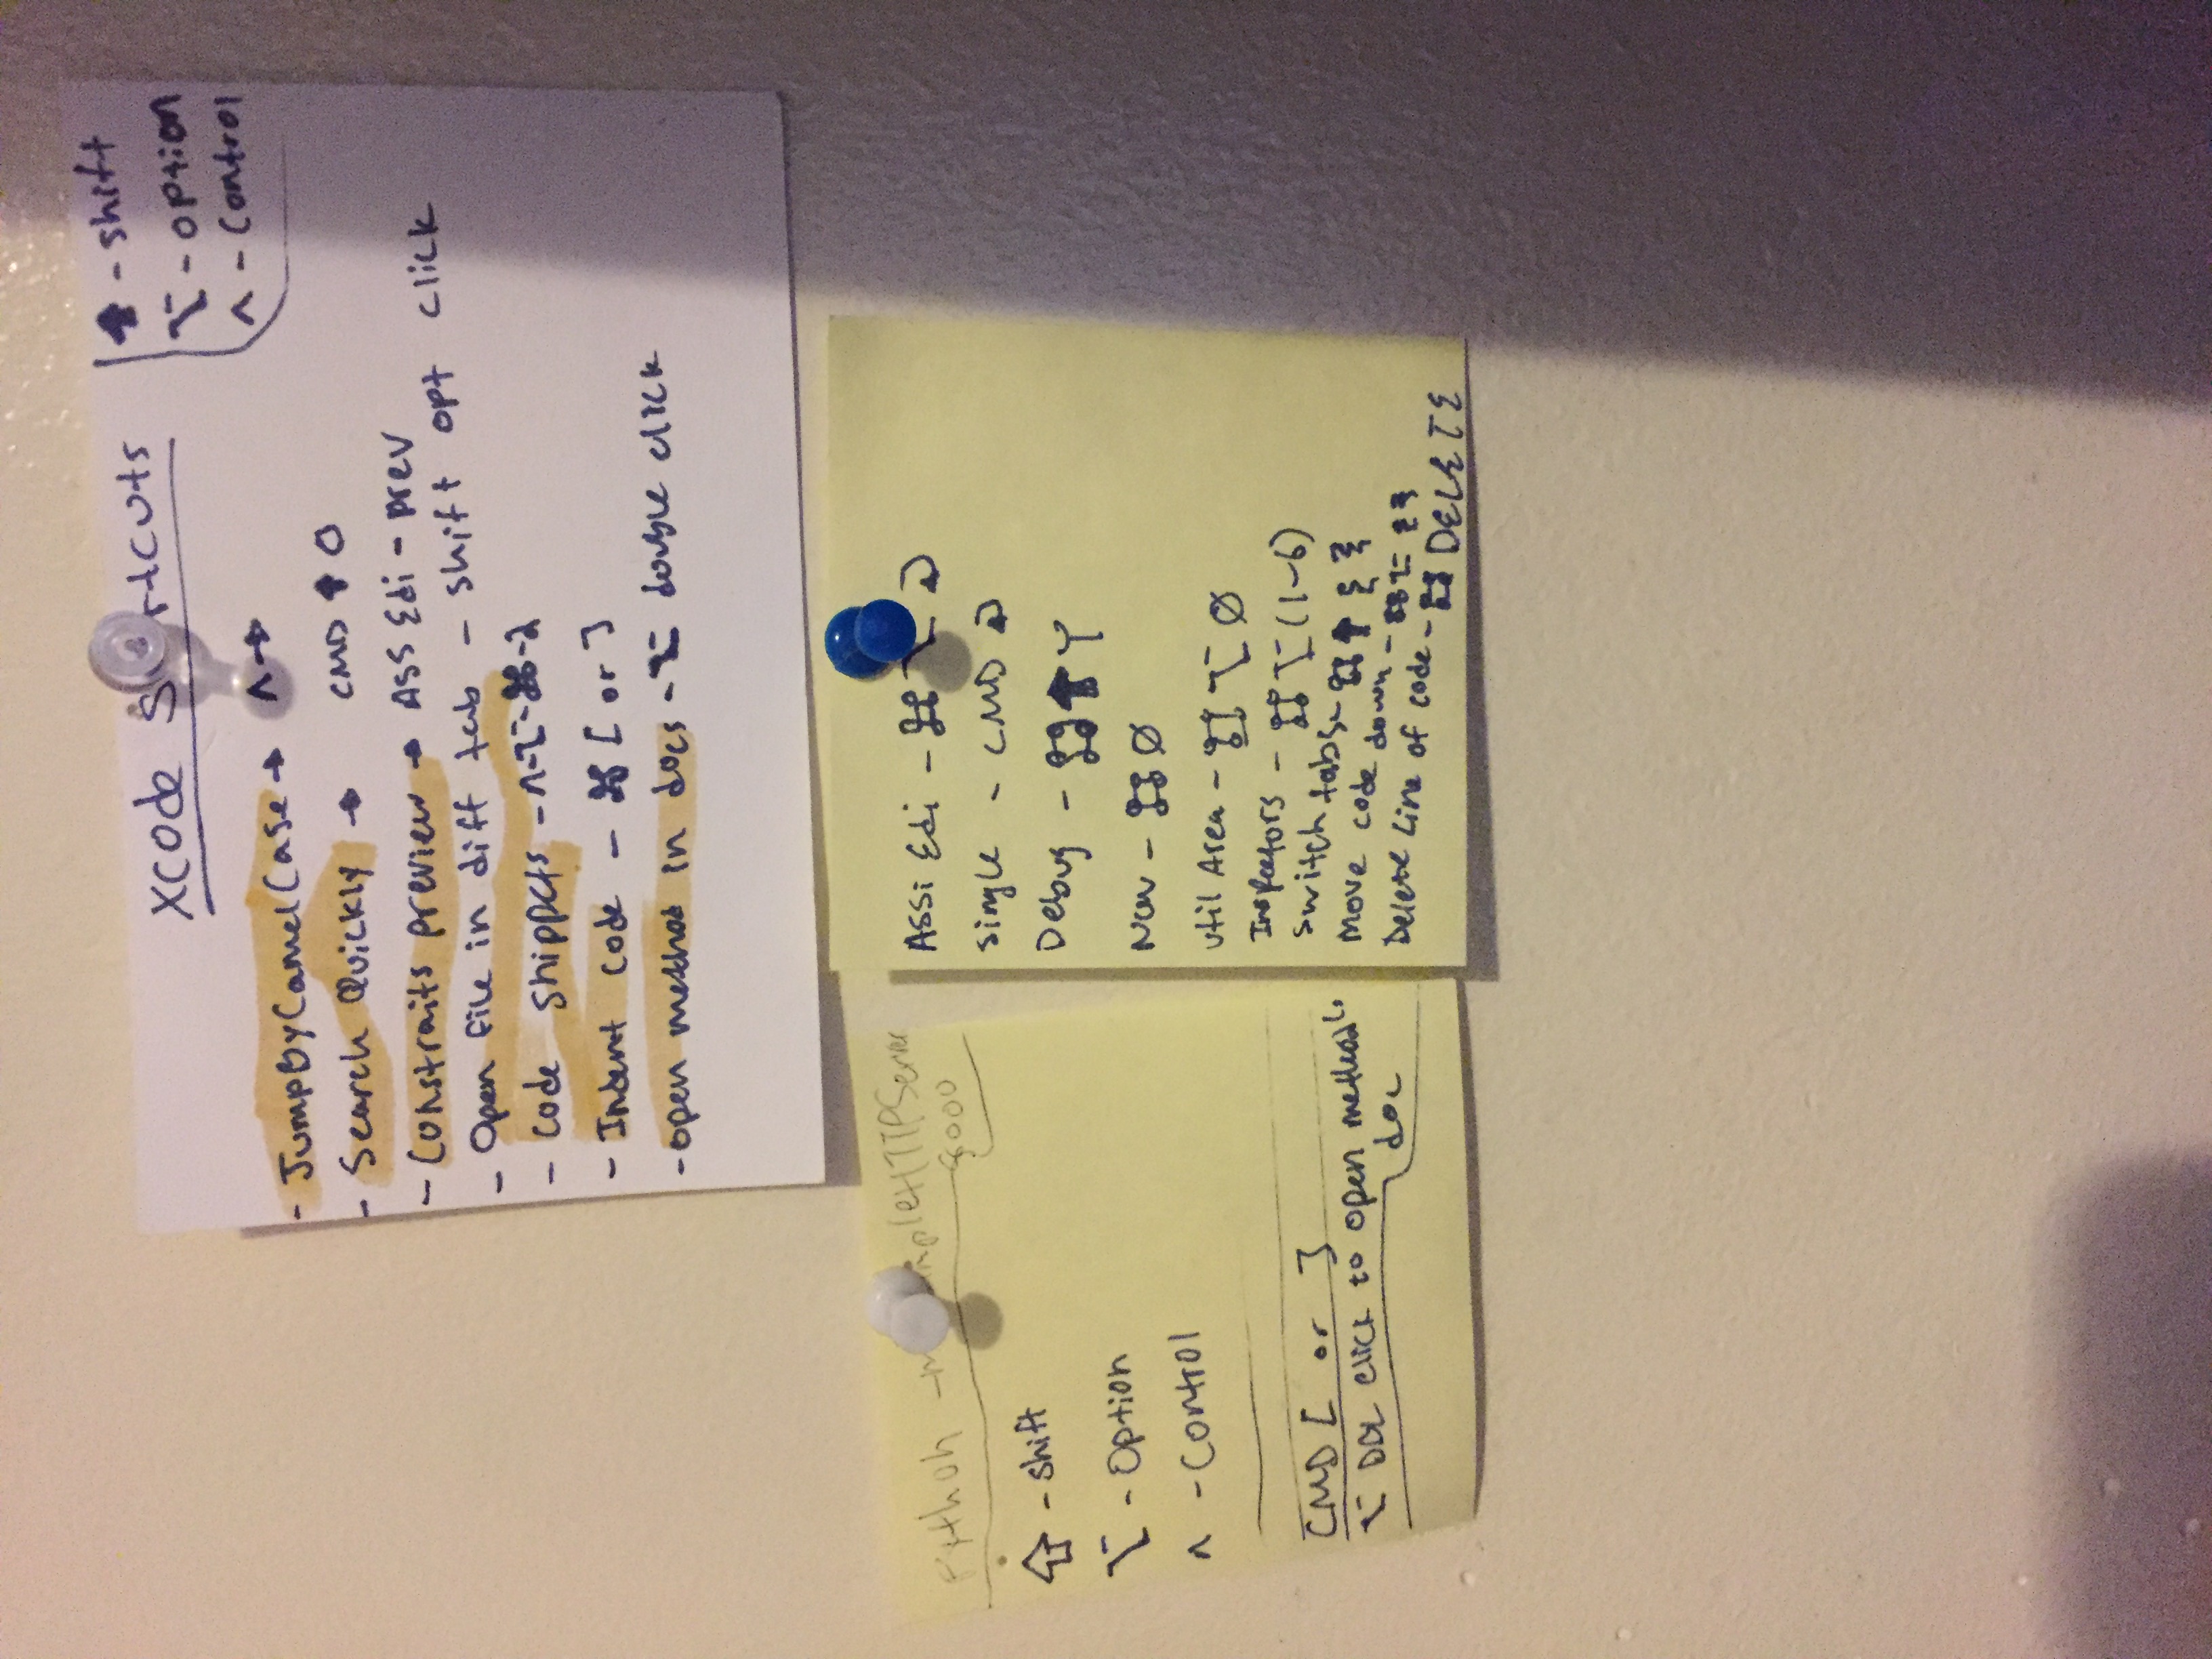 Xcode Shortcuts
⬆ - shift
⌥ - option
^ - Control
- JumpByCamelCase → ^→
- Search Quickly → CMD ⬆ O
- Constraits preview → Ass Edi - prev
- Open file in diff tab - shift opt click
- Code Snippets - ^-⌥-⌘-2
- Indent code - ⌘ [ or ]
- open method in docs - ⌥ double click
Python -m SimpleHTTPServer
8000
⇧ - Shift
⌥ - Option
^ - Control
CMD [ or ]
⌥ DBL click to open method
doc
Assi Edi - ⌘ ⌥ ↵
Single - CMD ↵
Debug - ⌘ ⬆ Y
Nav - ⌘ Ø
util Area - ⌘ ⌥ Ø
Inspectors - ⌘ ⌥ (1-6)
Switch tabs - ⌘ ⬆ { }
Move code down - ⌘ ⌥ { }
Delete Line of code - ⌘ DELETE